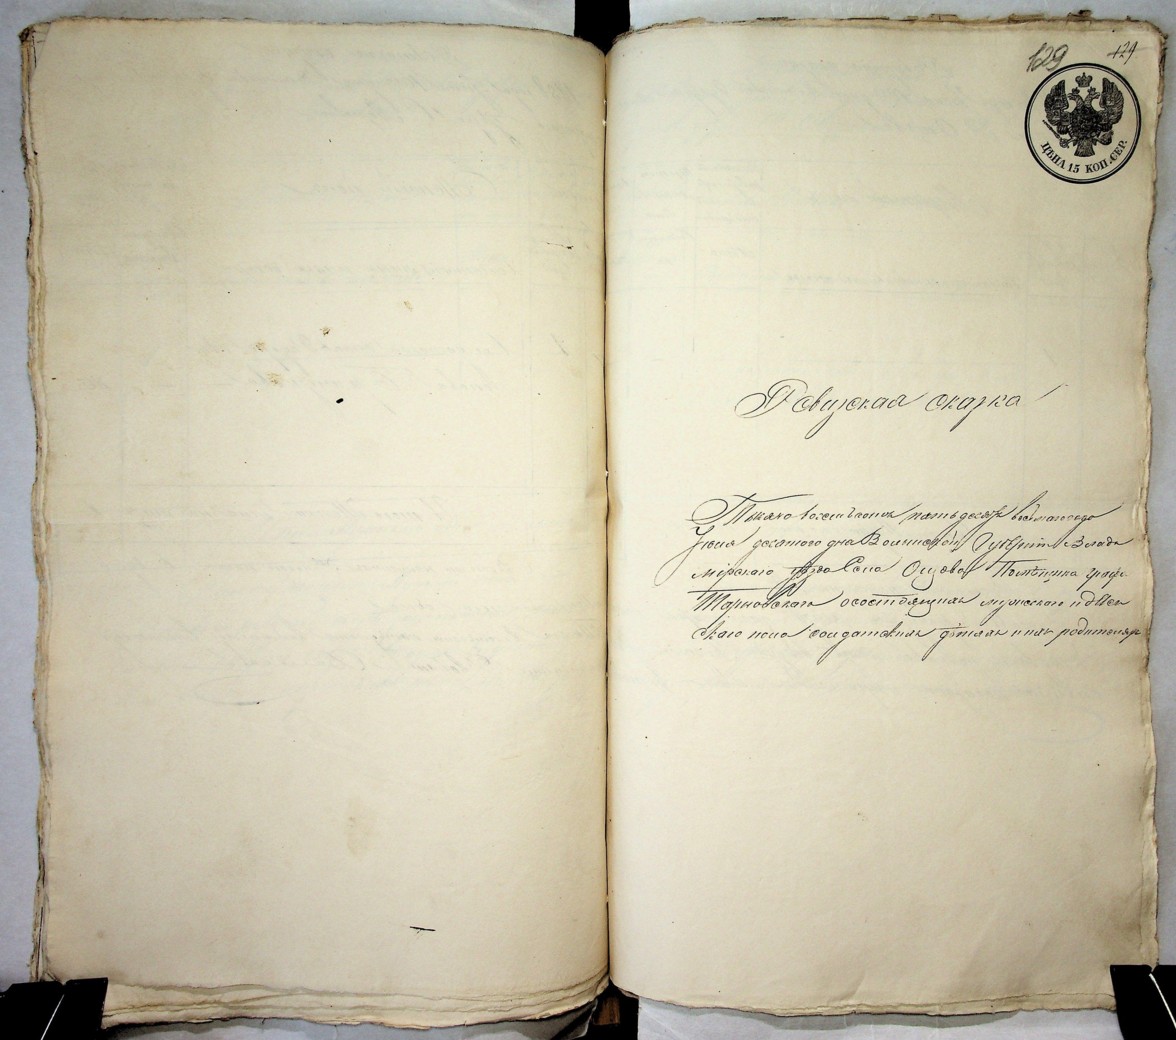 129
129
ЦѢНА 15 КОП. СЕР.
Ревизская сказка
Тысяча восемьсотъ пятьдесятъ восьмаго года
Іюня десятого дня Волынской Губерніи Влади
мірскаго уѣзда Села Помѣщика графа
Тарновскаго о состоящихъ мужескаго и женс
скаго пола солдатскихъ дѣтяхъ и ихъ родителяхъ